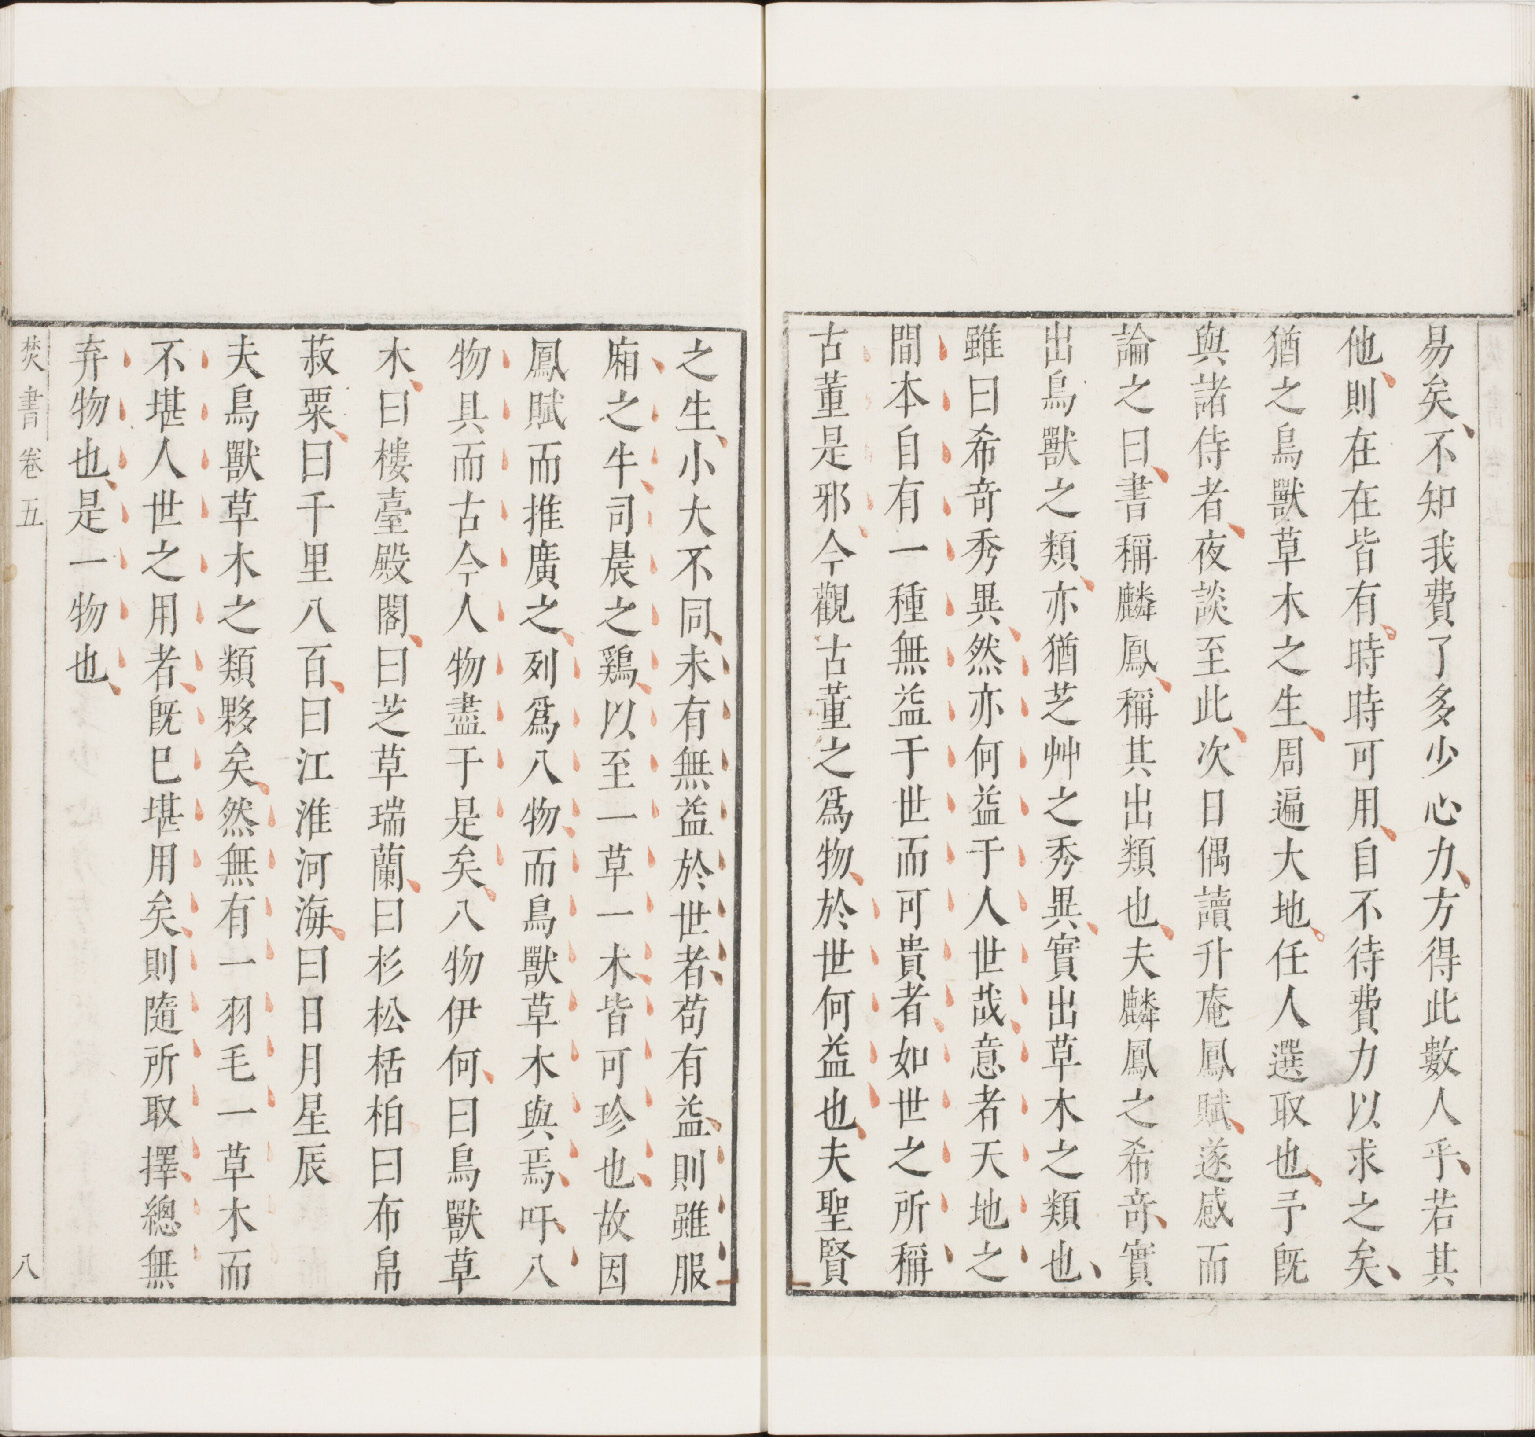 易矣不知我費了多少心力方得此數人乎若其
他則在在皆有時時可用自不待費力以求之矣
猶之鳥獸草木之生周遍大地任人選取也予旣
與諸侍者夜談至此次日偶讀升庵鳳賦遂感而
論之曰書稱麟鳳稱其出類也夫麟鳳之希竒實
出鳥獸之類亦猶芝艸之秀異實出草木之類也
雖曰希竒秀異然亦何益于人世哉意者天地之
間本自有一種無益于世而可貴者如世之所稱
古董是邪今觀古董之爲物於世何益也夫聖賢
之生小大不同未有無益於世者苟有益則雖服
廂之牛司晨之鷄以至一草一木皆可珍也故因
鳳賦而推廣之列爲八物而鳥獸草木與焉吁八
物具而古今人物盡于是矣八物伊何曰鳥獸草
木曰樓臺殿閣曰芝草瑞蘭曰杉松栝柏曰布帛
菽粟曰千里八百曰江淮河海曰日月星辰
夫鳥獸草木之類夥矣然無有一羽毛一草木而
不堪人世之用者旣已堪用矣則隨所取擇總無
弃物也是一物也
焚書卷五
八